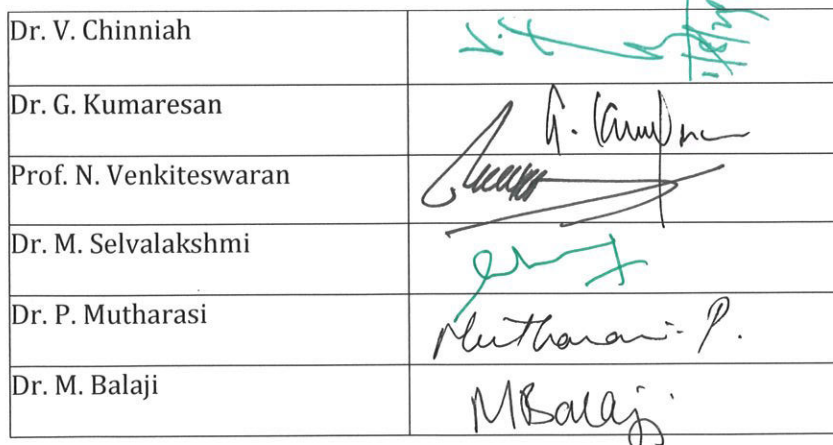 Dr. V. Chinniah
Dr. G. Kumaresan G. Kum
Prof. N. Venkiteswaran
Dr. M. Selvalakshmi
Dr. P. Mutharasi Mutharasi. P.
Dr. M. Balaji MBalaji